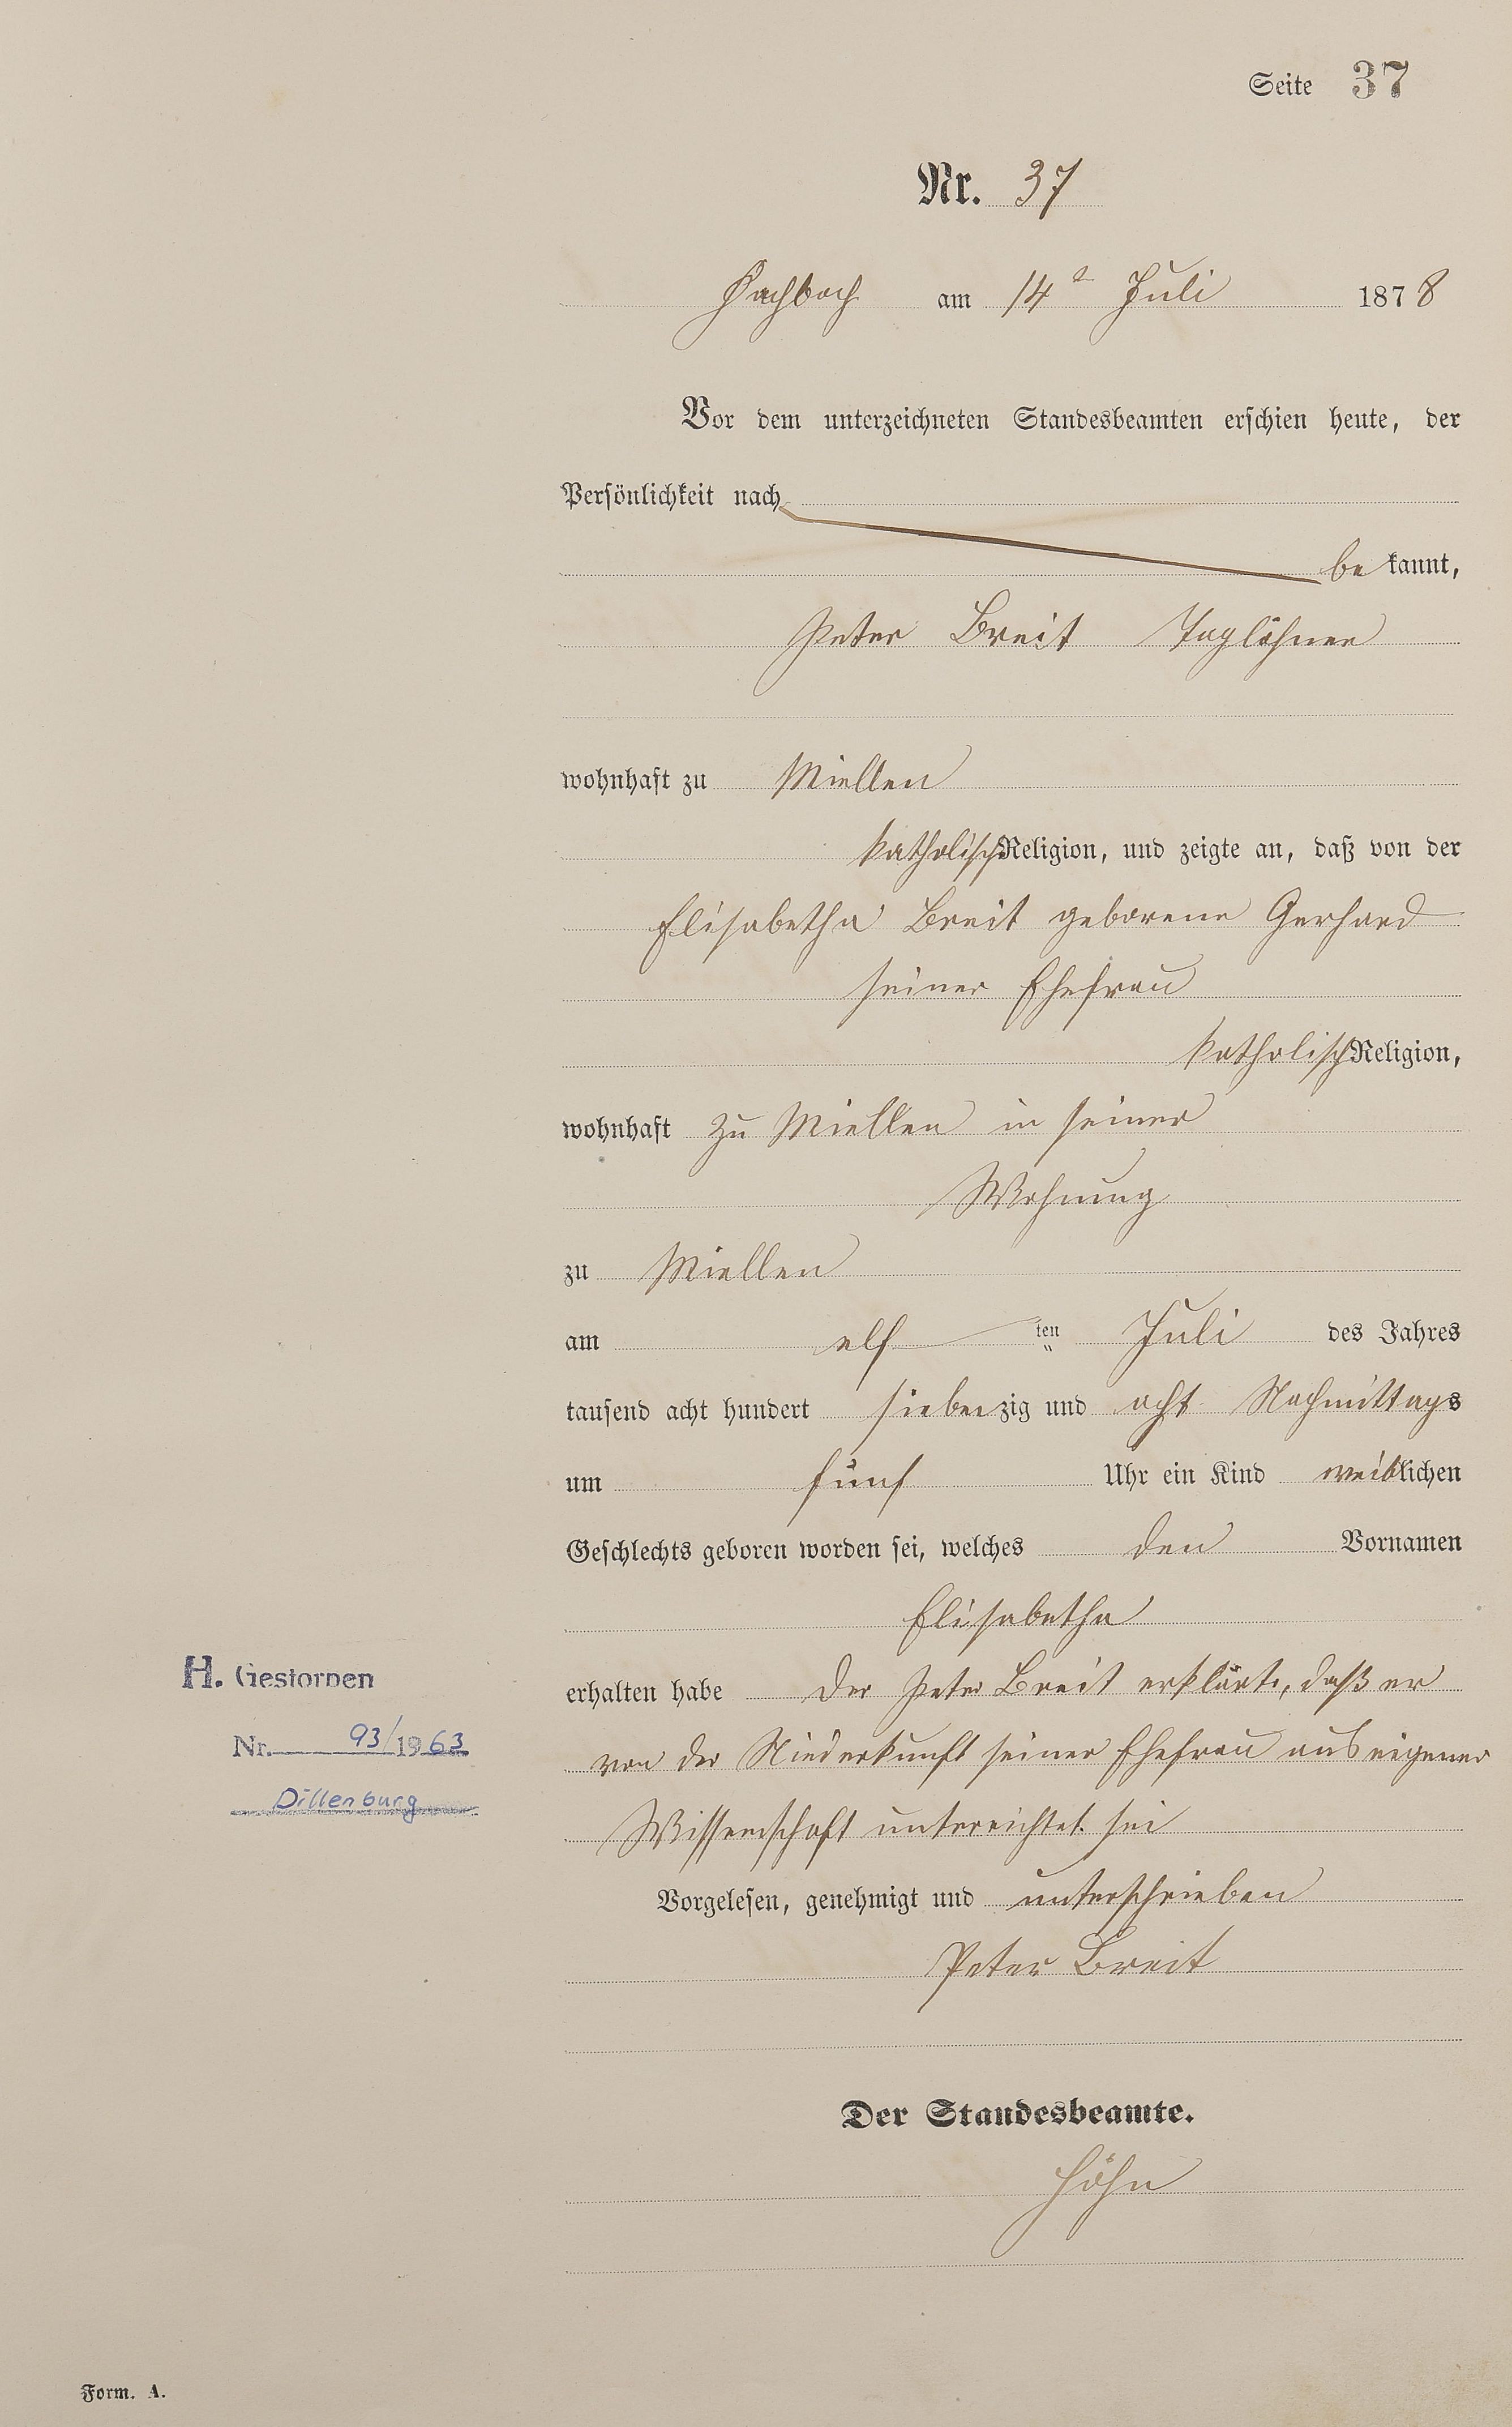 Seite 37
Nr. 37
Fachbach am 14t Juli 1878
Vor dem unterzeichneten Standesbeamten erschien heute, der
Persönlichkeit nach
be kannt,
Peter Breit Taglöhner
wohnhaft zu Miellen
katholisch Religion, und zeigte an, daß von der
Elisabetha Breit geborene Gerhard
seiner Ehefrau
katholisch Religion,
wohnhaft zu Miellen in seiner
Wohnung
zu Miellen
am elf ten Juli des Jahres
tausend acht hundert siebenzig und acht Nachmittags
um fünf Uhr ein Kind weiblichen
Geschlechts geboren worden sei, welches den Vornamen
Elisabetha
erhalten habe Der Peter Breit erklärte, daß er
von der Niederkunft seiner Ehefrau aus eigener
Wissenschaft unterrichtet sei
Vorgelesen, genehmigt und unterschrieben
Peter Breit
Der Standesbeamte.
Höhn
H. Gestorben
Nr. 93/1963
Dillenburg
Form. A.